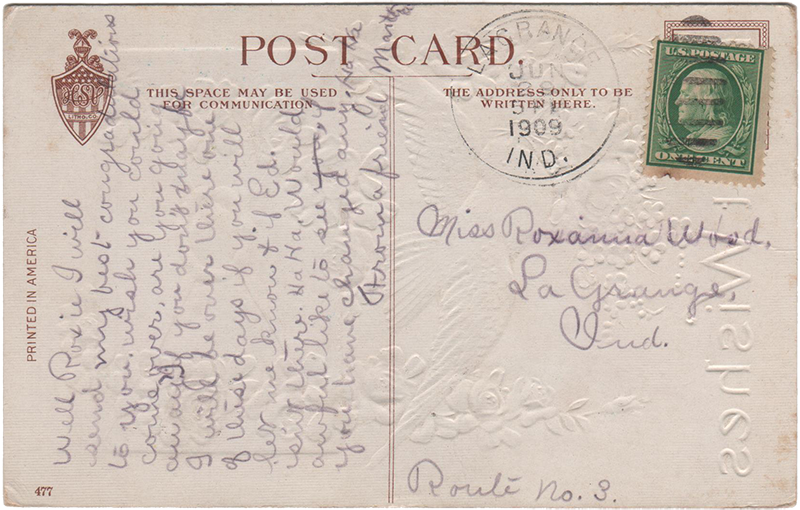 POST CARD.
THIS SPACE MAY BE USED
FOR COMMUNICATION
THE ADDRESS ONLY TO BE
WRITTEN HERE.
LA GRANGE
JUN
1909
IND.
U.S. POSTAGE
ONE CENT
LITHO. CO.
PRINTED IN AMERICA
477
Well Roxie I will
send my best congratulations
to you. wish you could
come over, are you going
away if you don't
I will be over there one
of these days if you will
let me know & if Ed.
isn't there. Ha Ha. Would
awful like to see if
you have changed any, Ha Ha
From a friend
Miss Roxanna Wood.
La Grange,
Ind.
Route No. 3.
t Wishes